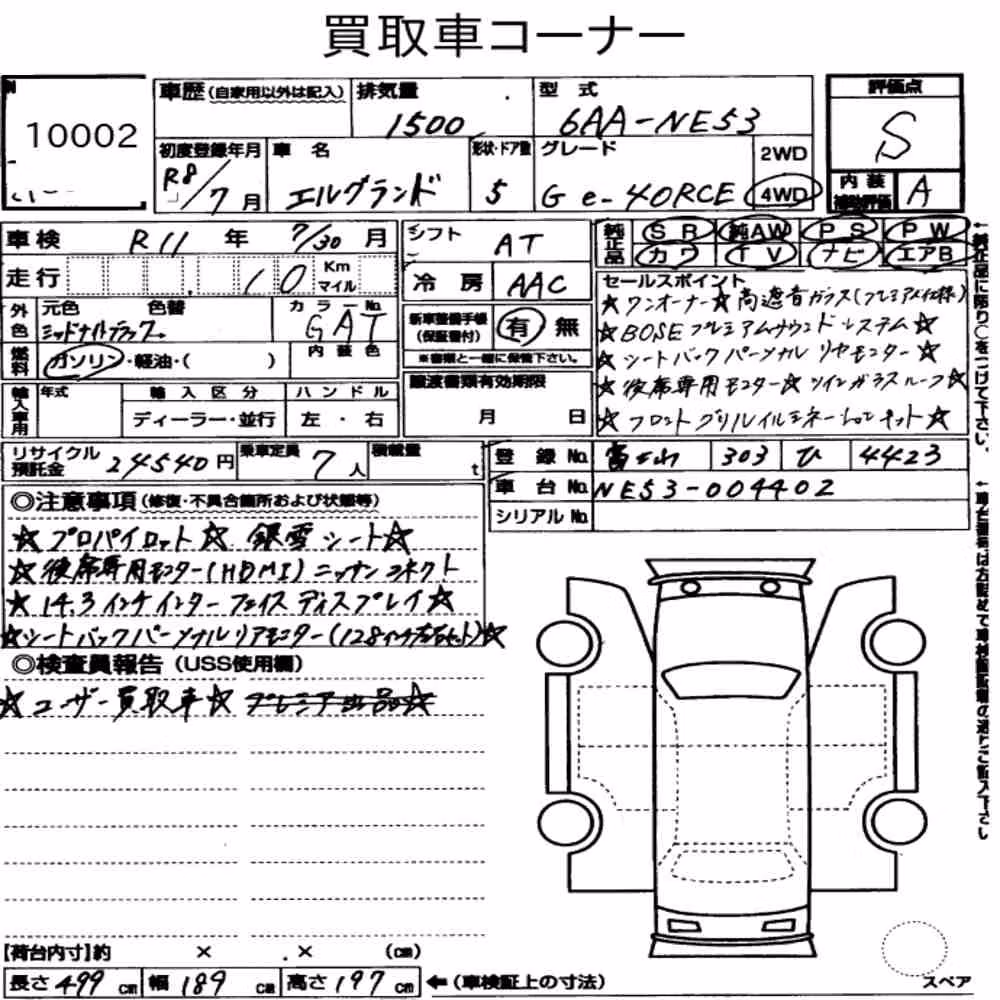 買取車コーナー
10002
車歴 (自家用以外は記入)
排気量 1500
型式 6AA-NE53
評価点 S
初度登録年月 R8/7月
車名 エルグランド
形状・ドア数 5
グレード G e-4ORCE
2WD 4WD
内装補助評価 A
車検 R11年 7/30月
シフト AT
純正品 SR 純AW PS PW
カワ TV ナビ エアB
走行 10 Km マイル
冷房 AAC
セールスポイント
☆ワンオーナー☆高遮音ガラス(プレミアム仕様)
☆BOSEプレミアムサウンドシステム☆
☆シートバックパーソナルリヤモニター☆
☆後席専用モニター☆ツインガラスルーフ☆
☆フロントグリルイルミネーションキット☆
外色 元色 色替 ミッドナイトブラック
カラーNo. GAT
新車整備手帳(保証書付) 有 無
※書類と一緒に保管下さい。
燃料 ガソリン・軽油・( )
内装色
輸入車用 年式 輸入区分 ハンドル
ディーラー・並行 左・右
譲渡書類有効期限
月 日
リサイクル預託金 24540円
乗車定員 7人
積載量 t
登録No. 富士山 303 ひ 4423
車台No. NE53-004402
シリアルNo.
◎注意事項 (修復・不具合箇所および状態等)
☆プロパイロット☆ 銀雪シート☆
☆後席専用モニター(HDMI)ニッサンコネクト
☆14.3インチインターフェイスディスプレイ☆
☆シートバックパーソナルリアモニター(12.8インチ左右セット)☆
◎検査員報告 (USS使用欄)
☆ユーザー買取車☆ プレミア出品☆
【荷台内寸】約 × .× (cm)
長さ 499 cm 幅 189 cm 高さ 197 cm ←(車検証上の寸法)
スペア
←純正品に限り○をつけて下さい.
←車台番号は右詰めで車検証記載の通りご記入下さい